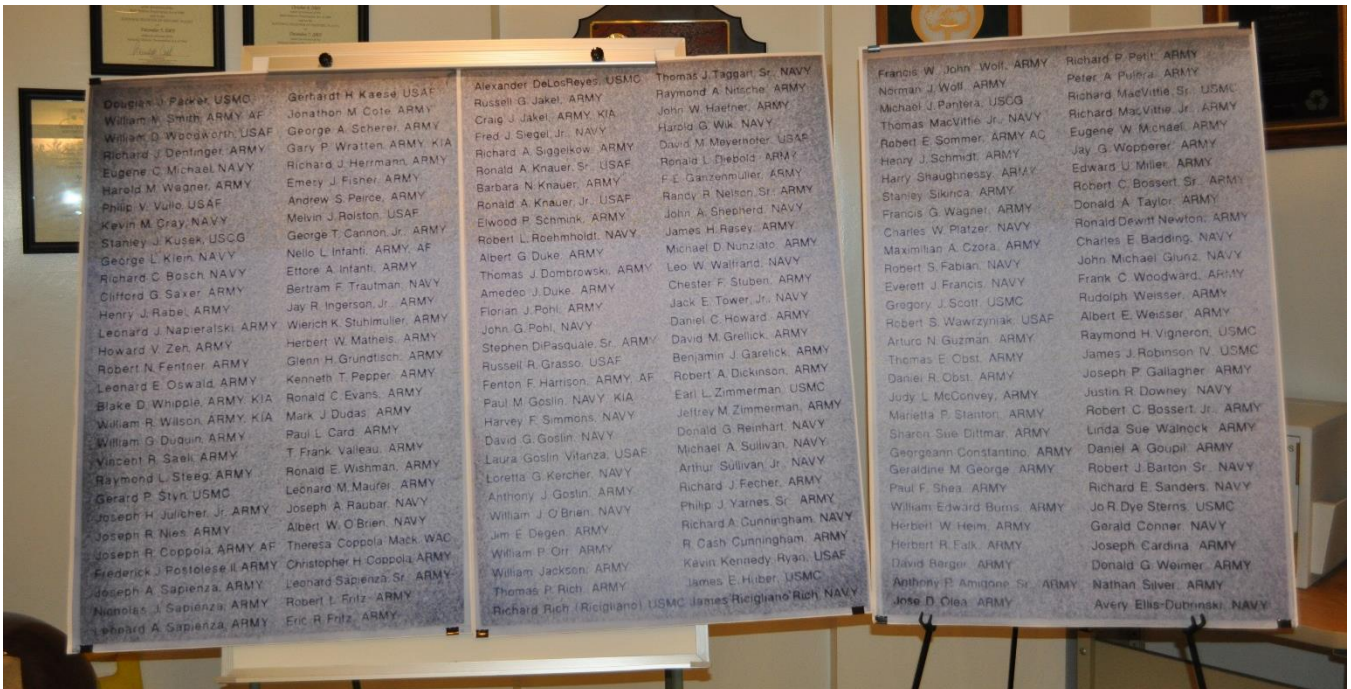 Douglas J. Parker, USMC
William M. Smith, ARMY AF
William D. Woodworth, USAF
Richard J. Dentinger, ARMY
Eugene C. Michael, NAVY
Harold M. Wagner, ARMY
Philip V. Vullo, USAF
Kevin M. Gray, NAVY
Stanley J. Kusek, USCG
George L. Klein, NAVY
Richard C. Bosch, NAVY
Clifford G. Saxer, ARMY
Henry J. Rabel, ARMY
Leonard J. Napieralski, ARMY
Howard V. Zeh, ARMY
Robert N. Fentner, ARMY
Leonard E. Oswald, ARMY
Blake D. Whipple, ARMY, KIA
William R. Wilson, ARMY, KIA
William G. Duquin, ARMY
Vincent R. Saeli, ARMY
Raymond L. Steeg, ARMY
Gerard P. Styn, USMC
Joseph H. Julicher, Jr., ARMY
Joseph R. Nies, ARMY
Joseph R. Coppola, ARMY AF
Frederick J. Postolese II, ARMY
Joseph A. Sapienza, ARMY
Nicholas J. Sapienza, ARMY
Leonard A. Sapienza, ARMY
Gerhardt H. Kaese, USAF
Jonathon M. Cote, ARMY
George A. Scherer, ARMY
Gary P. Wratten, ARMY, KIA
Richard J. Herrmann, ARMY
Emery J. Fisher, ARMY
Andrew S. Peirce, ARMY
Melvin J. Rolston, USAF
George T. Cannon, Jr., ARMY
Nello L. Infanti, ARMY, AF
Ettore A. Infanti, ARMY
Bertram F. Trautman, NAVY
Jay R. Ingerson, Jr., ARMY
Wierich K. Stuhlmuller, ARMY
Herbert W. Matheis, ARMY
Glenn H. Grundtisch, ARMY
Kenneth T. Pepper, ARMY
Ronald C. Evans, ARMY
Mark J. Dudas, ARMY
Paul L. Card, ARMY
T. Frank Valleau, ARMY
Ronald E. Wishman, ARMY
Leonard M. Maurer, ARMY
Joseph A. Raubar, NAVY
Albert W. O'Brien, NAVY
Theresa Coppola Mack, WAC
Christopher H. Coppola, ARMY
Leonard Sapienza Sr., ARMY
Robert L. Fritz, ARMY
Eric R. Fritz, ARMY
Alexander DeLosReyes, USMC
Russell G. Jakel, ARMY
Craig J. Jakel, ARMY, KIA
Fred J. Siegel, Jr., NAVY
Richard A. Siggelkow, ARMY
Ronald A. Knauer, Sr., USAF
Barbara N. Knauer, ARMY
Ronald A. Knauer, Jr., USAF
Elwood P. Schmink, ARMY
Robert L. Roehmholdt, NAVY
Albert G. Duke, ARMY
Thomas J. Dombrowski, ARMY
Amedeo J. Duke, ARMY
Florian J. Pohl, ARMY
John G. Pohl, NAVY
Stephen DiPasquale, Sr., ARMY
Russell R. Grasso, USAF
Fenton F. Harrison, ARMY, AF
Paul M. Goslin, NAVY, KIA
Harvey F. Simmons, NAVY
David G. Goslin, NAVY
Laura Goslin Vitanza, USAF
Loretta G. Kercher, NAVY
Anthony J. Goslin, ARMY
William J. O'Brien, NAVY
Jim E. Degen, ARMY
William P. Orr, ARMY
William Jackson, ARMY
Thomas P. Rich, ARMY
Richard Rich (Ricigliano), USMC
Thomas J. Taggart, Sr., NAVY
Raymond A. Nitsche, ARMY
John W. Haefner, ARMY
Harold G. Wik, NAVY
David M. Meyerhofer, USAF
Ronald L. Diebold, ARMY
F.E. Ganzenmuller, ARMY
Randy R. Nelson, Sr., ARMY
John A. Shepherd, NAVY
James H. Rasey, ARMY
Michael D. Nunziato, ARMY
Leo W. Walfrand, NAVY
Chester F. Stuben, ARMY
Jack E. Tower, Jr., NAVY
Daniel C. Howard, ARMY
David M. Grellick, ARMY
Benjamin J. Garelick, ARMY
Robert A. Dickinson, ARMY
Earl L. Zimmerman, USMC
Jeffrey M. Zimmerman, ARMY
Donald G. Reinhart, NAVY
Michael A. Sullivan, NAVY
Arthur Sullivan, Jr., NAVY
Richard J. Fecher, ARMY
Philip J. Yarnes, Sr., ARMY
Richard A. Cunningham, NAVY
R. Cash Cunningham, ARMY
Kevin Kennedy Ryan, USAF
James E. Hiiber, USMC
James Ricigliano Rich, NAVY
Francis W. John, Wolf, ARMY
Norman J. Wolf, ARMY
Michael J. Pantera, USCG
Thomas MacVittie Jr., NAVY
Robert E. Sommer, ARMY AC
Henry J. Schmidt, ARMY
Harry Shaughnessy, ARMY
Stanley Sikinca, ARMY
Francis G. Wagner, ARMY
Charles W. Platzer, NAVY
Maximilian A. Czora, ARMY
Robert S. Fabian, NAVY
Everett J. Francis, NAVY
Gregory J. Scott, USMC
Robert S. Wawrzyniak, USAF
Arturo N. Guzman, ARMY
Thomas E. Obst, ARMY
Daniel R. Obst, ARMY
Judy L. McConvey, ARMY
Marietta P. Stanton, ARMY
Sharon Sue Dittmar, ARMY
Georgeann Constantino, ARMY
Geraldine M. George, ARMY
Paul F. Shea, ARMY
William Edward Burns, ARMY
Herbert W. Heim, ARMY
Herbert R. Falk, ARMY
David Barger, ARMY
Anthony P. Amigone, Sr., ARMY
Jose D. Olea, ARMY
Richard P. Petit, ARMY
Peter A. Pulera, ARMY
Richard MacVittie, Sr., USMC
Richard MacVittie, Jr., ARMY
Eugene W. Michael, ARMY
Jay G. Wopperer, ARMY
Edward U. Miller, ARMY
Robert C. Bossert, Sr., ARMY
Donald A. Taylor, ARMY
Ronald Dewitt Newton, ARMY
Charles E. Badding, NAVY
John Michael Glunz, NAVY
Frank C. Woodward, ARMY
Rudolph Weisser, ARMY
Albert E. Weisser, ARMY
Raymond H. Vigneron, USMC
James J. Robinson IV, USMC
Joseph P. Gallagher, ARMY
Justin R. Downey, NAVY
Robert C. Bossert, Jr., ARMY
Linda Sue Walnock, ARMY
Daniel A. Goupil, ARMY
Robert J. Barton Sr., NAVY
Richard E. Sanders, NAVY
Jo R. Dye Sterns, USMC
Gerald Conner, NAVY
Joseph Cardina, ARMY
Donald G. Weimer, ARMY
Nathan Silver, ARMY
Avery Ellis-Dubrinski, NAVY